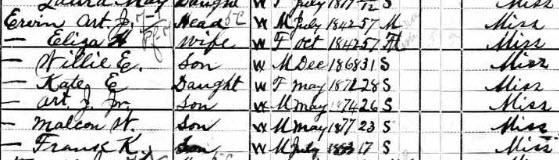 Laura May Daught W F July 1899 7/12 S Miss
Ervin Art J. Head W M July 1842 57 M Miss
— Eliza H Wife W F Oct 1842 57 M Miss
— Willie E. Son W M Dec 1868 31 S Miss
— Kate E Daught W F May 1872 28 S Miss
— Art J Jr. Son W M May 1874 26 S Miss
— Malcon W. Son W M May 1877 23 S Miss
— Frank K. Son W M July 17 S Miss